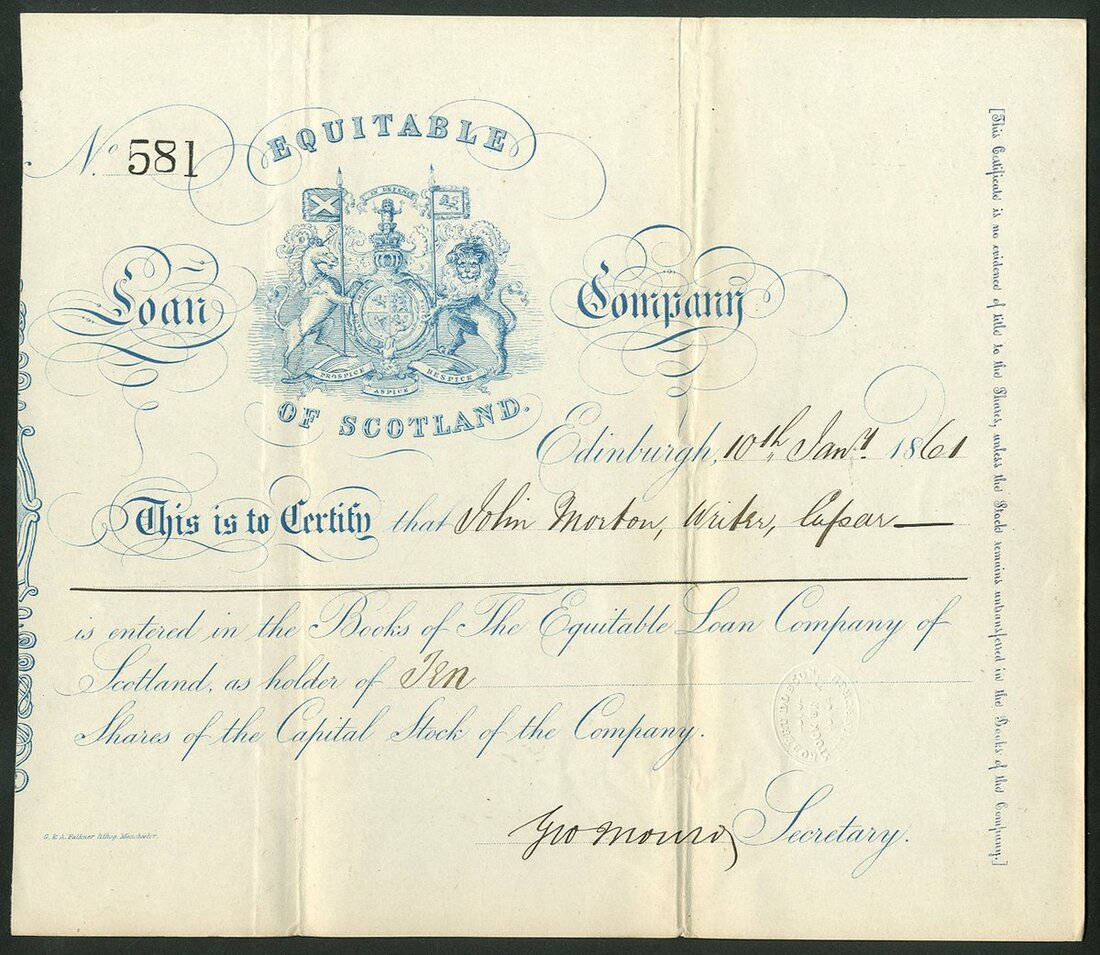 No 581
EQUITABLE
IN DEFENCE
Loan Company
PROSPICE RESPICE
ASPICE
OF SCOTLAND.
Edinburgh, 10th Jany 1861
This is to Certify that John Morton, Writer, Cupar —
is entered in the Books of The Equitable Loan Company of
Scotland, as holder of Ten
Shares of the Capital Stock of the Company.
Geo Monro Secretary.
G. & A. Falkner, lithog. Manchester.
[This Certificate is no evidence of title to the Shares, unless the Stock remains untransferred in the Books of the Company.]